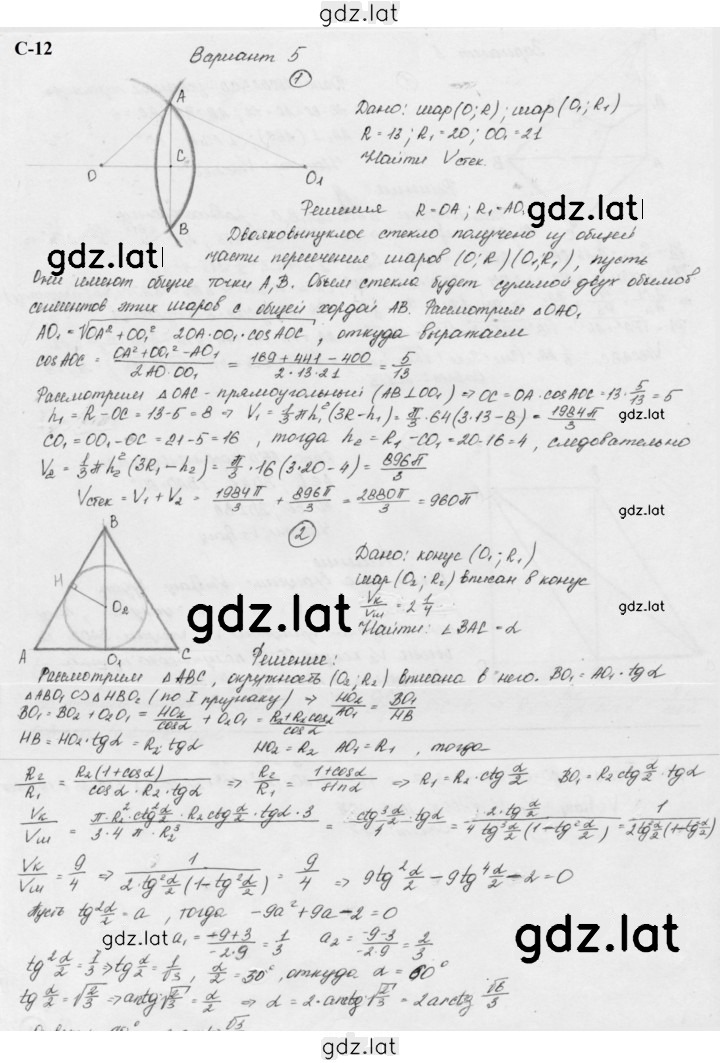 gdz.lat
С-12
Вариант 5
1
A
C
O
O1
B
Дано: шар (O; R); шар (O1; R1)
R = 13; R1 = 20; OO1 = 21
Найти Vстек.
Решения R = OA; R1 = AO1
gdz.lat
gdz.lat
Двояковыпуклое стекло получено из общей
части пересечения шаров (O; R) (O1; R1), пусть
Они имеют общие точки A, B. Объем стекла будет суммой двух объемов
сегментов этих шаров с общей хордой AB. Рассмотрим △OAO1
AO1 = √(OA² + OO1² 2OA·OO1·cosAOC), откуда выражаем
cosAOC = (OA² + OO1² - AO1)/(2AO·OO1) = (169 + 441 - 400)/(2·13·21) = 5/13
Рассмотрим △OAC - прямоугольный (AB⊥OO1) ⇒ OC = OA·cosAOC = 13·5/13 = 5
h1 = R - OC = 13 - 5 = 8 ⇒ V1 = 1/3 πh1²(3R - h1) = π/3·64(3·13 - 8) = 1984π/3
gdz.lat
CO1 = OO1 - OC = 21 - 5 = 16, тогда h2 = R1 - CO1 = 20 - 16 = 4, следовательно
V2 = 1/3 πh2²(3R1 - h2) = π/3·16(3·20 - 4) = 896π/3
Vстек = V1 + V2 = 1984π/3 + 896π/3 = 2880π/3 = 960π
gdz.lat
2
B
H
O2
A
O1
C
Дано: конус (O1; R1)
шар (O2; R2) вписан в конус
Vк/Vш = 2 1/4
Найти: ∠BAC = α
gdz.lat
gdz.lat
Решение:
Рассмотрим △ABC, окружность (O2; R2) вписана в него. BO1 = AO1·tgα
△ABO1 ∽ △HBO2 (по I признаку) ⇒ HO2/AO1 = BO1/HB
BO1 = BO2 + O2O1 = HO2/cosα + O2O1 = (R2 + R2cosα)/cosα
HB = HO2·tgα = R2·tgα HO2 = R2 AO1 = R1, тогда
R2/R1 = R2(1 + cosα)/(cosα·R2·tgα) ⇒ R2/R1 = (1 + cosα)/sinα ⇒ R1 = R2·ctg α/2 BO1 = R2ctg α/2·tgα
Vк/Vш = (π·R2²ctg² α/2·R2ctg α/2·tgα·3)/(3·4π·R2³) = (ctg³ α/2·tgα)/4 = (2·tg α/2)/(4tg³ α/2(1 - tg² α/2)) = 1/(2tg² α/2(1 - tg² α/2))
Vк/Vш = 9/4 ⇒ 1/(2·tg² α/2(1 - tg² α/2)) = 9/4 ⇒ 9tg² α/2 - 9tg⁴ α/2 - 2 = 0
Пусть tg² α/2 = a, тогда -9a² + 9a - 2 = 0
gdz.lat
a1 = (-9+3)/(-2·9) = 1/3 a2 = (-9-3)/(-2·9) = 2/3
gdz.lat
tg² α/2 = 1/3 ⇒ tg α/2 = 1/√3, α/2 = 30°, откуда α = 60°
tg α/2 = √(2/3) ⇒ arctg√(2/3) = α/2 ⇒ α = 2·arctg√(2/3) = 2arctg √6/3
gdz.lat